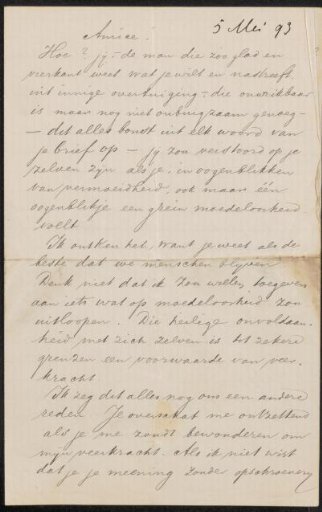 5 Mei 93
Amice.
Hoe? jij – de man die zoo glad en
vierkant weet wat je wilt en nastreeft
uit innige overtuiging – die onwrikbaar
is maar nog niet onbuigzaam genoeg –
– dit alles bonst uit elk woord van
je brief op – jij zou verstoord op je
zelven zijn als je, in oogenblikken
van vermoeidheid, ook maar één
oogenblikje een grein moedeloosheid
voelt.
Ik ontken het, want je weet als de
beste dat we menschen blijven
Denk niet dat ik zou willen toegeven
aan iets wat op moedeloosheid zou
uitloopen. Die heilige onvoldaan-
heid met zich zelven is tot zekere
grenzen een voorwaarde van veer-
kracht
Ik zeg dit alles nog om een andere
reden. Je overschat me ontzettend
als je me zoudt bewonderen om
mijn veerkracht. Als ik niet wist
dat je je meening zonder opschroeverij